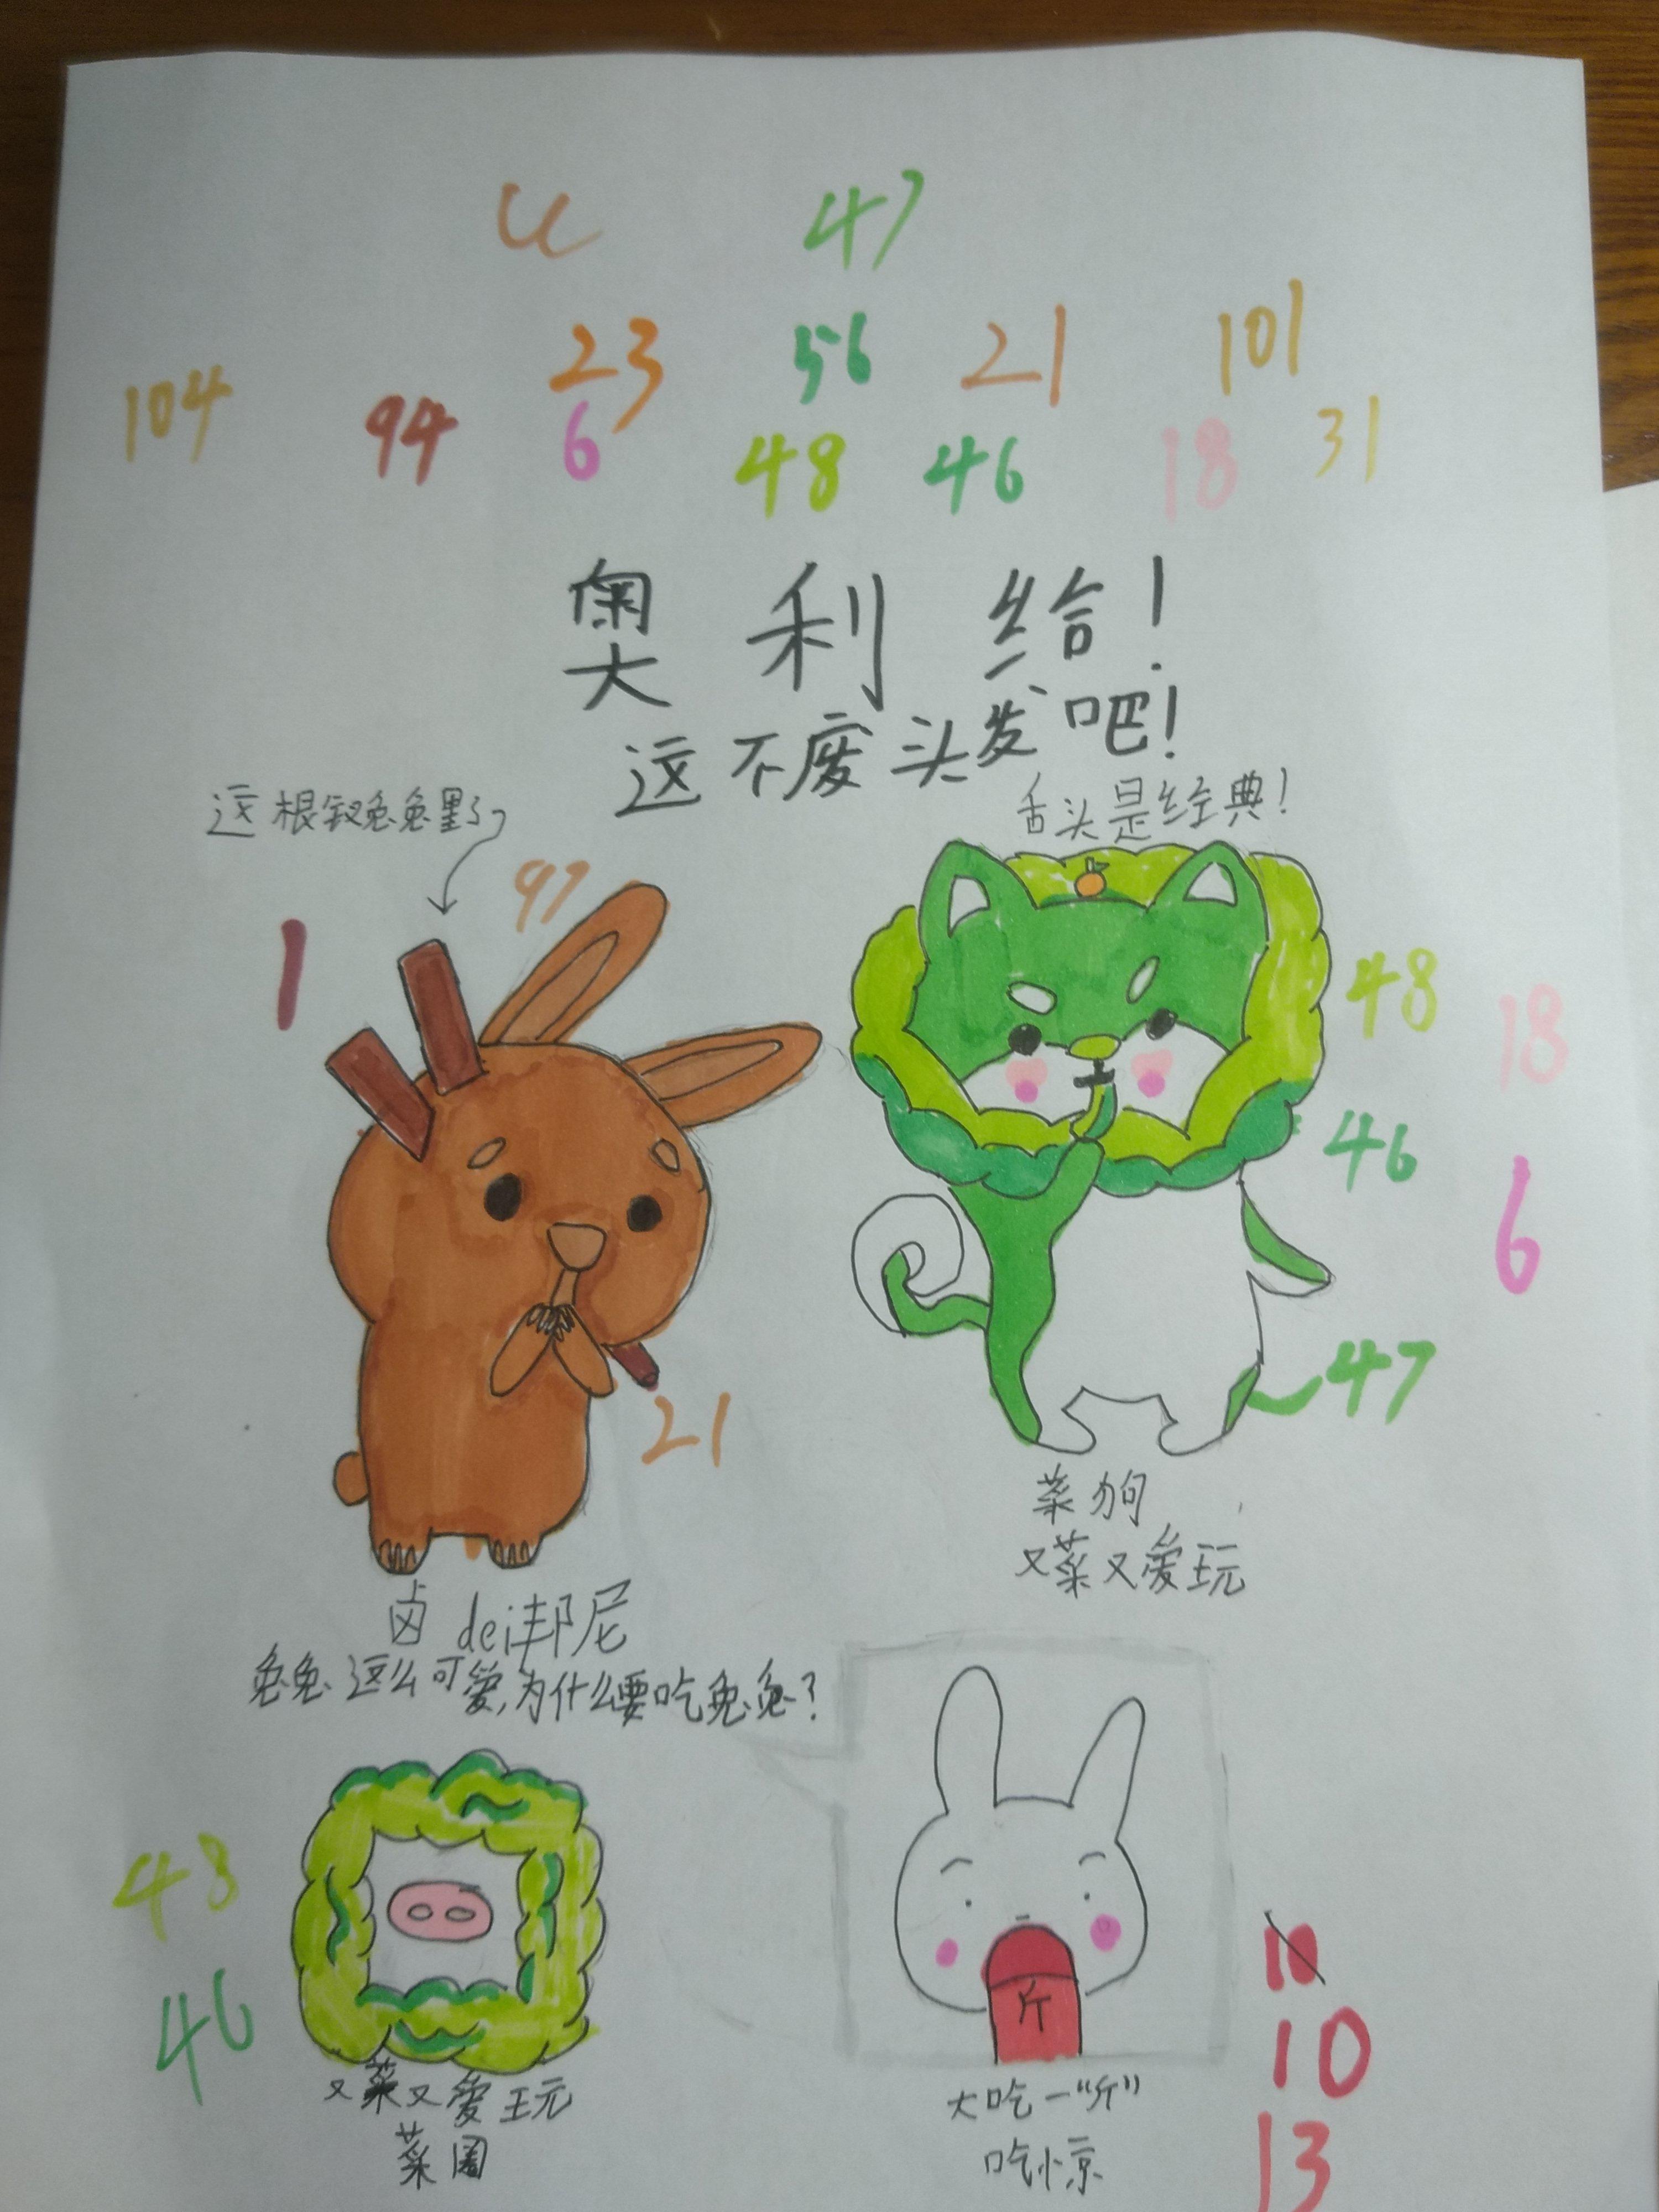 47
23 56 21 101
104 94 6 48 46 18 31
奥利给!
这不废头发吧!
舌头是经典!
97
1
48
18
46
6
47
21
菜狗
又菜又爱玩
卤dei邦尼
兔兔这么可爱,为什么要吃兔兔?
48
46
又菜又爱玩
菜圈
斤
10
10
13
大吃一“斤”
吃惊